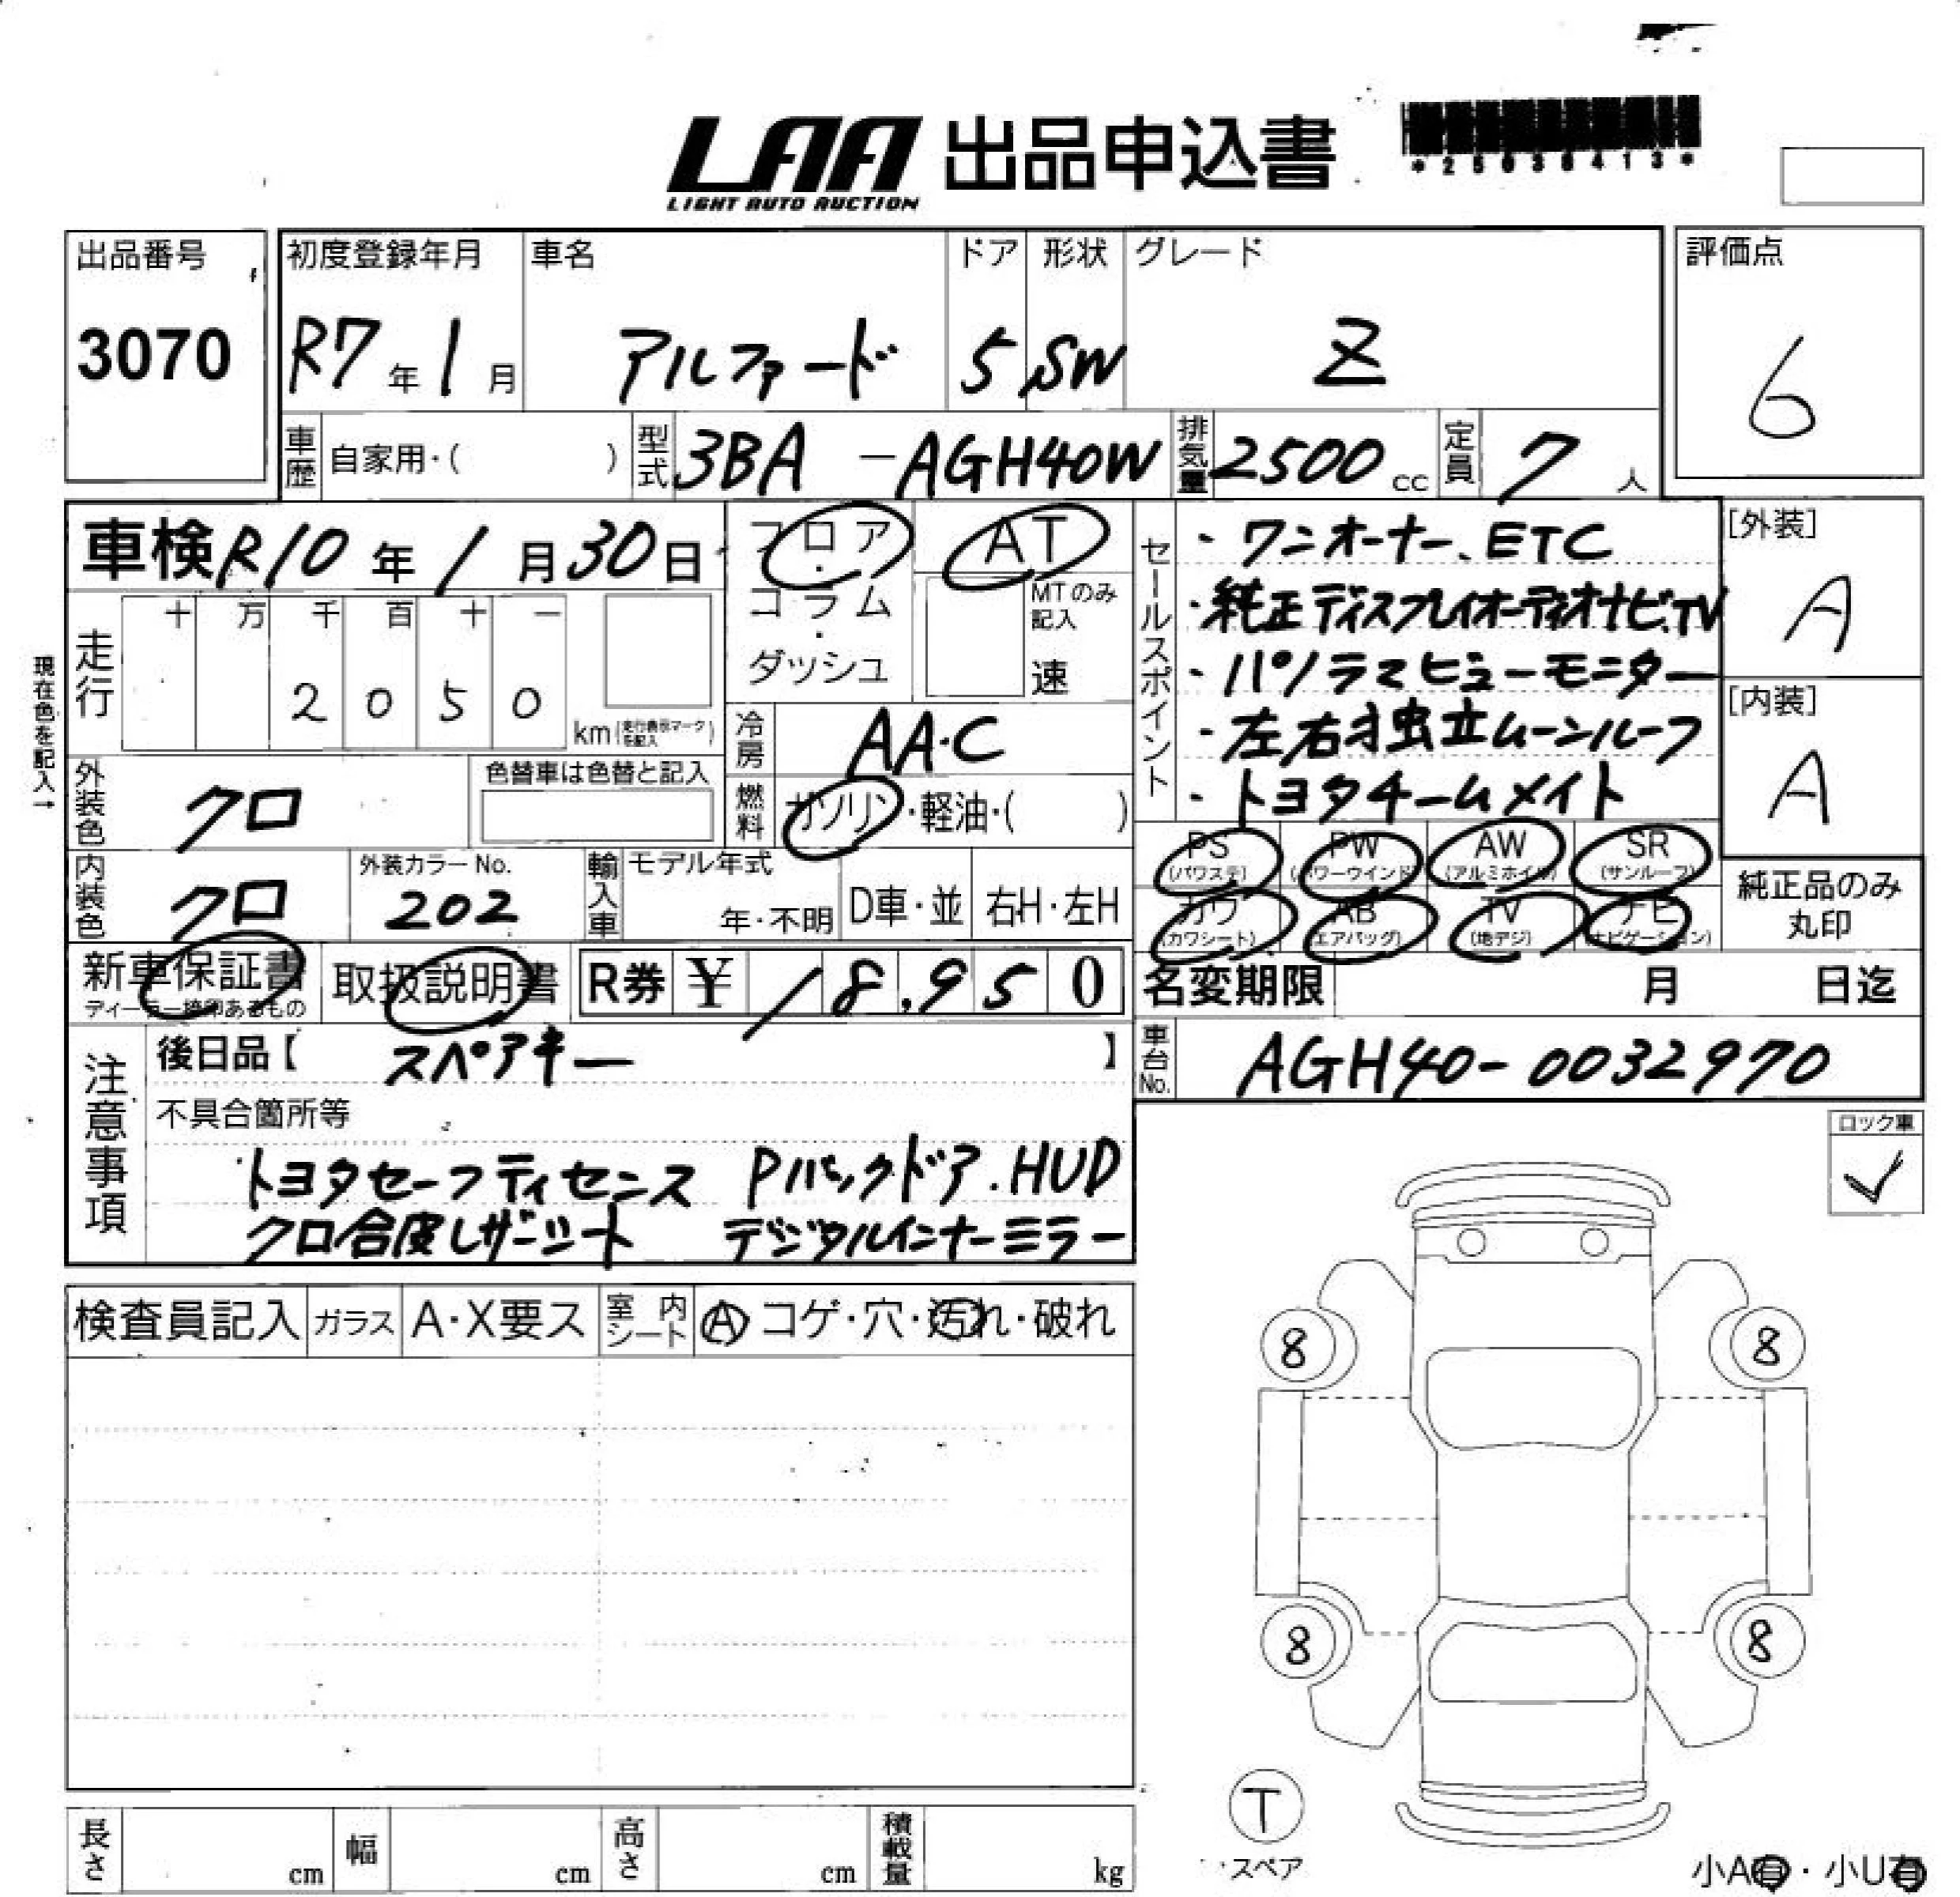 LAA 出品申込書
LIGHT AUTO AUCTION
*25030413*
出品番号
3070
初度登録年月
R7年1月
車名
アルファード
ドア
5
形状
SW
グレード
Z
評価点
6
車歴 自家用・( )
型式 3BA -AGH40W
排気量 2500 cc
定員 7 人
車検 R10年1月30日
フロア・コラム・ダッシュ
AT
MTのみ記入
速
走行
十 万 千 百 十 一
2 0 5 0
km(走行表示マークを記入)
現在色を記入→
冷房 AA・C
外装色 クロ
色替車は色替と記入
燃料 ガソリン・軽油・( )
内装色 クロ
外装カラーNo.
202
輸入車
モデル年式
年・不明
D車・並
右H・左H
セールスポイント
・ワンオーナー、ETC
・純正ディスプレイオーディオナビ、TV
・パノラマビューモニター
・左右独立ムーンルーフ
・トヨタチームメイト
[外装]
A
[内装]
A
PS (パワステ)
PW (パワーウインド)
AW (アルミホイル)
SR (サンルーフ)
カワ (カワシート)
AB (エアバッグ)
TV (地デジ)
ナビ (ナビゲーション)
純正品のみ丸印
新車保証書
ディーラー捺印あるもの
取扱説明書
R券 ¥ 18,950
名変期限 月 日迄
車台No. AGH40-0032970
注意事項
後日品【 スペアキー 】
不具合箇所等
トヨタセーフティセンス Pバックドア.HUD
クロ合皮レザーシート デジタルインナーミラー
ロック車
検査員記入 ガラス A・X要ス 室内シート A コゲ・穴・汚れ・破れ
8 8
8 8
T
スペア
小A有・小U有
長さ cm 幅 cm 高さ cm 積載量 kg